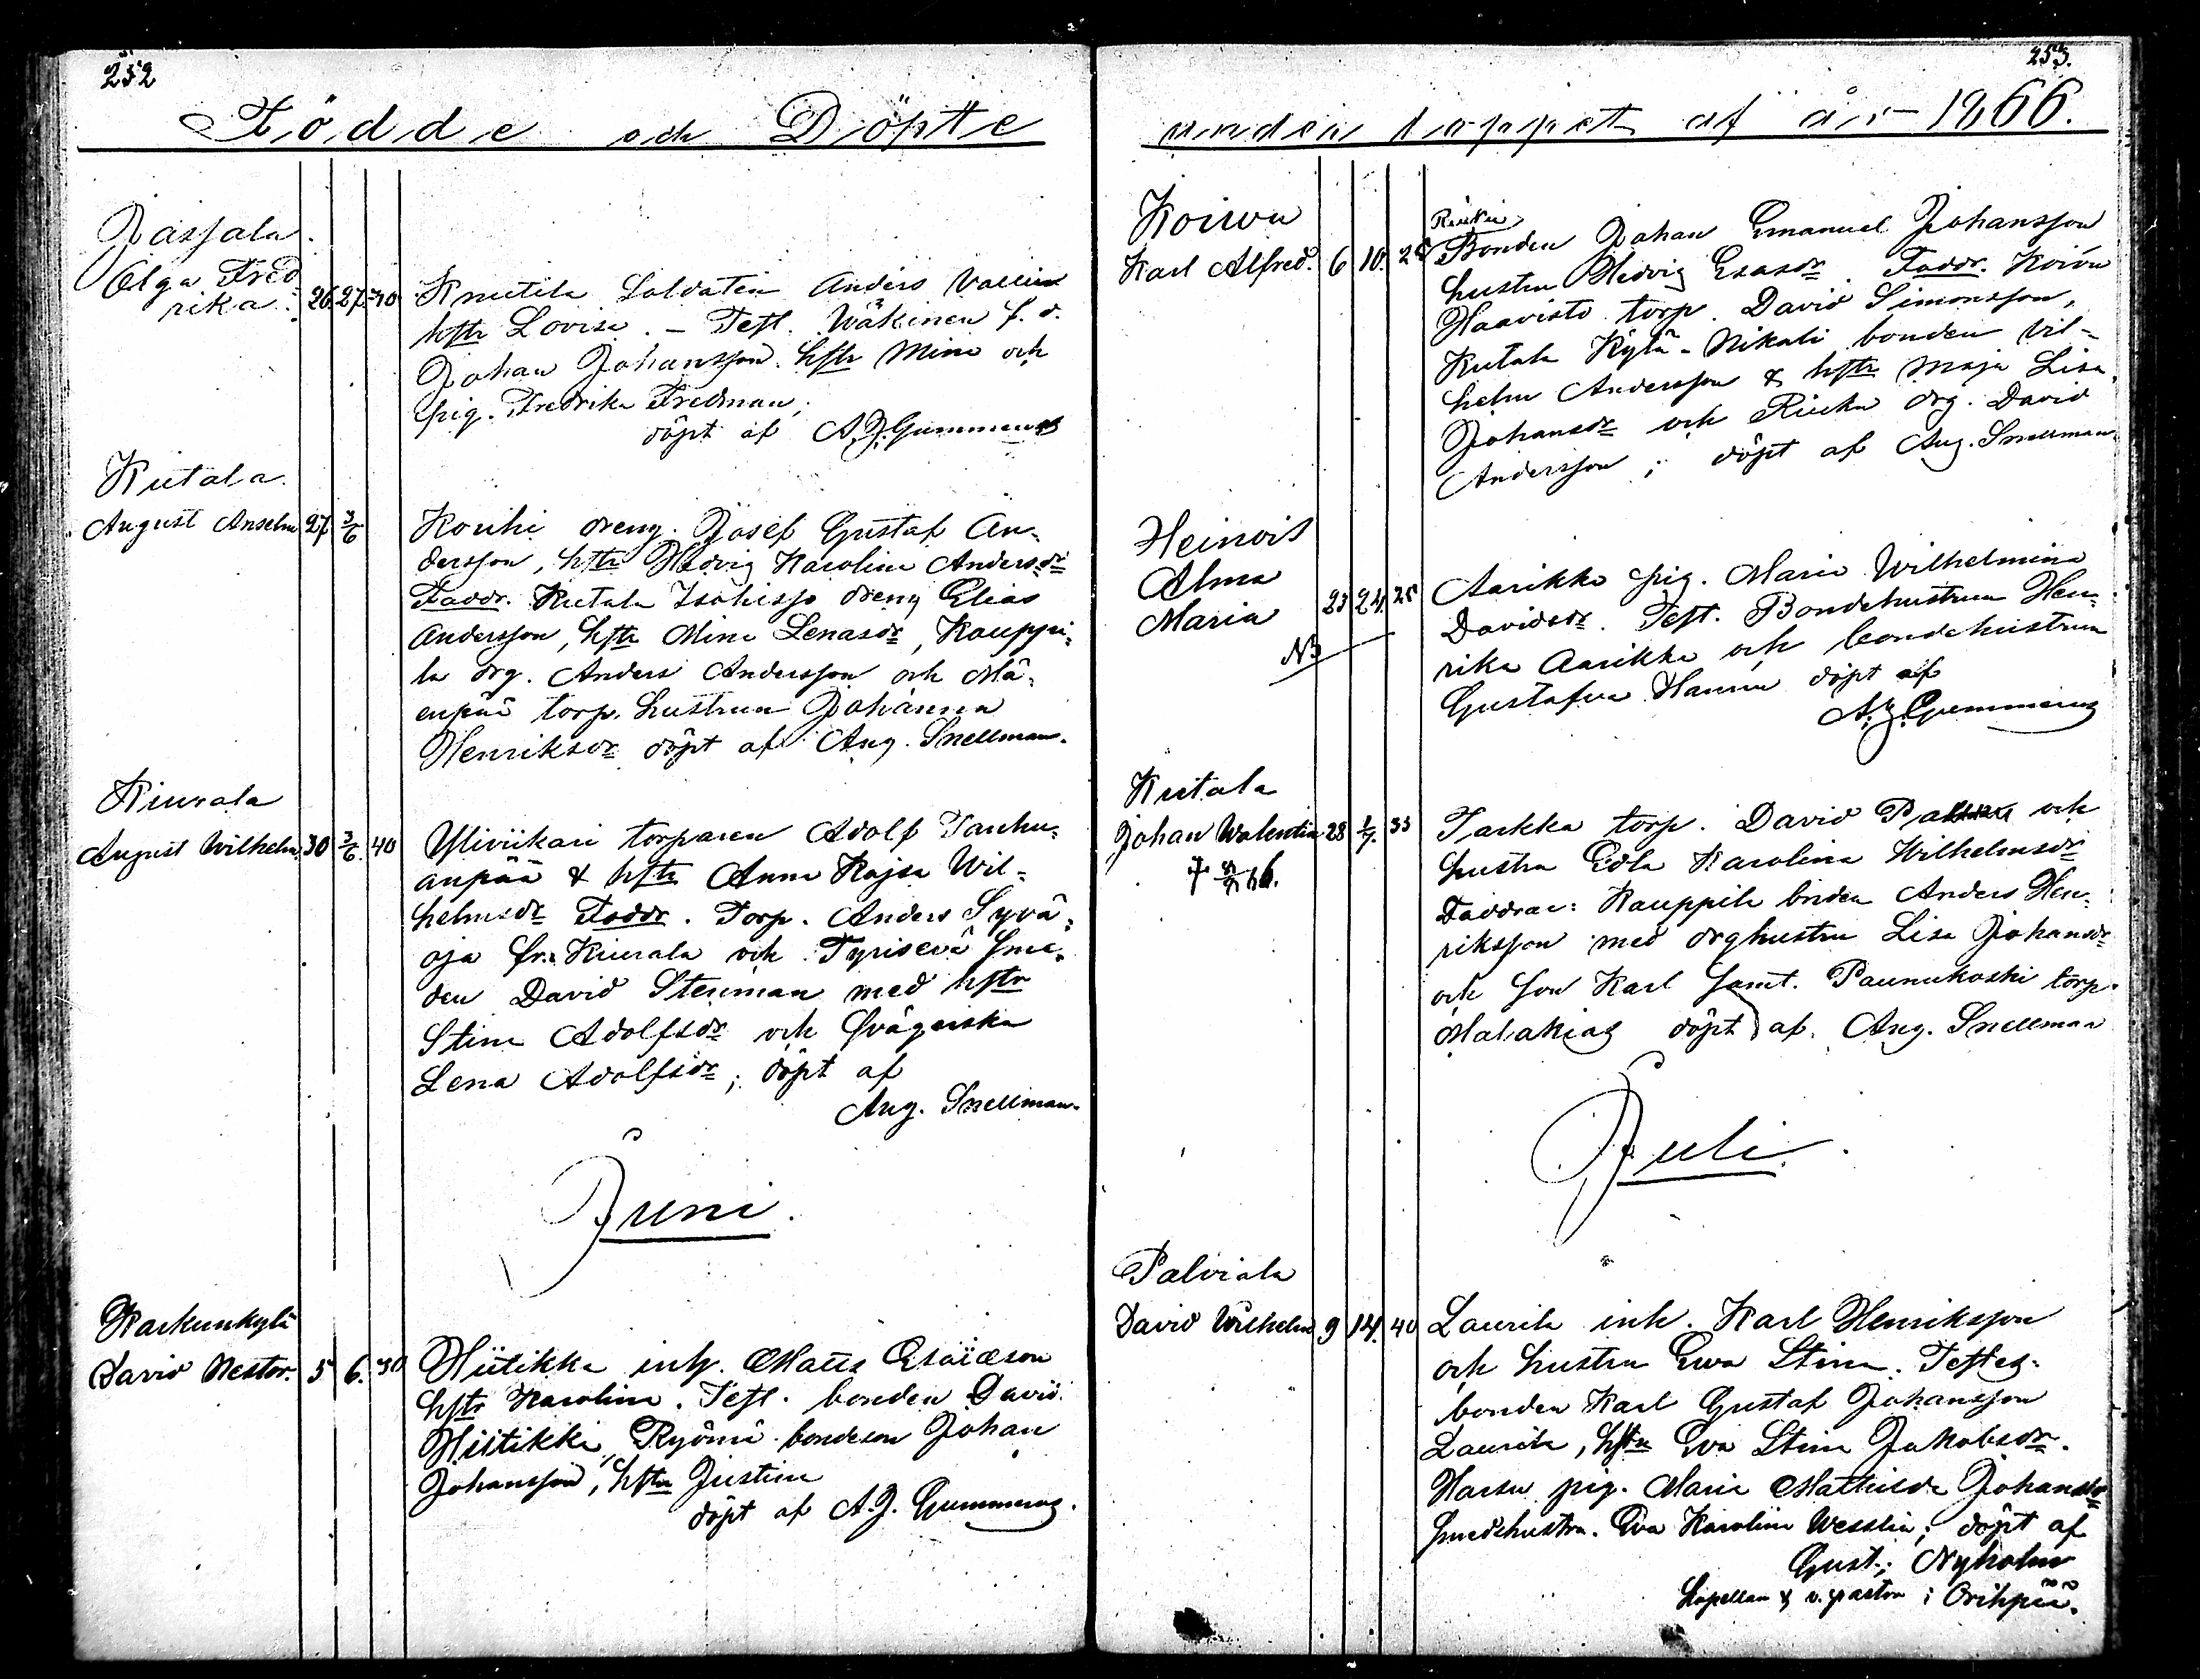 252
Födde och Döpte
Jassala.
Olga Fred-
rika. 26 27 40
Knutila Soldaten Anders Vallin
hstr Lovisa. – Test. Wäkinen f. d.
Johan Johansson hstr Mina och
pig. Fredrika Fredman;
döpt af A. J. Gummerus
Kutala.
August Anselm 27 3/6
Kouhi dreng. Josef Gustaf An-
dersson, hstr Hedvig Karolina Andersdr
Faddr. Kutala Isohisso dreng Elias
Andersson, hstr Mina Lenasdr, Kauppi-
la drg. Anders Andersson och Mä-
enpää torp. hustrun Johanna
Henriksdr döpt af Aug. Snellman.
Kiurala
August Wilhelm 30 3/6. 40
Yliviikari torparen Adolf Tanhu-
anpää & hstr Anna Kajsa Wil-
helmsdr Faddr. Torp. Anders Syvä-
oja fr. Kiurala och Tyrisevä Sme-
den David Stenman med hstr
Stina Adolfsdr och Svägerska
Lena Adolfsdr; döpt af
Aug. Snellman.
Juni.
Karkunkylä
David Nestor. 5 6. 30
Hiitikka inh. Matts Esaiæson
hstr Karolina. Test. bonden David
Hiitikki, Ryömä bondeson Johan
Johansson, hstr Justina
döpt af A. J. Gummerus.
253.
under loppet af år 1866.
Koivu
Karl Alfred. 6 10. 28
Riuku
Bonden Johan Emanuel Johansson
hustru Hedvig Esasdr. Faddr. Koivu
Haavisto torp. David Simonsson,
Kutala Kylä-Nikali bonden Vil-
helm Andersson & hstr Maja Lisa
Johansdr och Riuku drg. David
Andersson; döpt af Aug. Snellman
Heinois
Alma
Maria 23 24. 28
NB
Aarikka pig. Maria Wilhelmina
Davidsdr. Test. Bondehustrun Hen-
rika Aarikka och bondehustrun
Gustafva Hannu döpt af
A. J. Gummerus
Kutala
Johan Walentin 28 1/7. 33
Tarkka torp. David och
hustru Edla Karolina Wilhelmsdr
Faddrar: Kauppila bnden Anders Hen-
riksson med drghustru Lisa Johansdr
och Son Karl samt. Paunukoski torp.
Malakias döpt af. Aug. Snellman
Juli.
Palviala
David Wilhelm 9 14. 40
Laurila inh. Karl Henriksson
och hustru Ewa Stina. Testes.
bonden Karl Gustaf Johansson
Laurila, hstr Eva Stina Jakobsdr.
Harsu pig. Maria Mathilda Johansdr
smedhustru. Eva Karolina Wesslin; döpt af
Gust. Nyholm
Kapellan & v. pastor i Oripää.